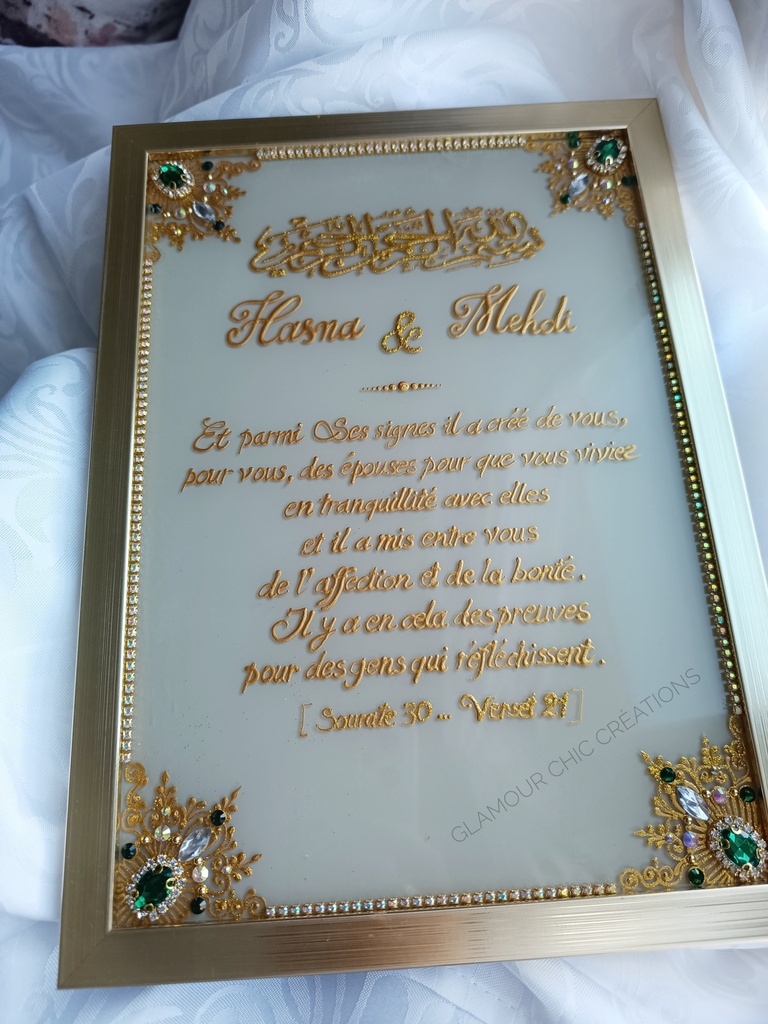 بسم الله الرحمن الرحيم
Hasna & Mehdi
Et parmi Ses signes il a créé de vous,
pour vous, des épouses pour que vous viviez
en tranquillité avec elles
et il a mis entre vous
de l'affection et de la bonté.
Il y a en cela des preuves
pour des gens qui réfléchissent.
[ Sourate 30... Verset 21 ]
GLAMOUR CHIC CRÉATIONS